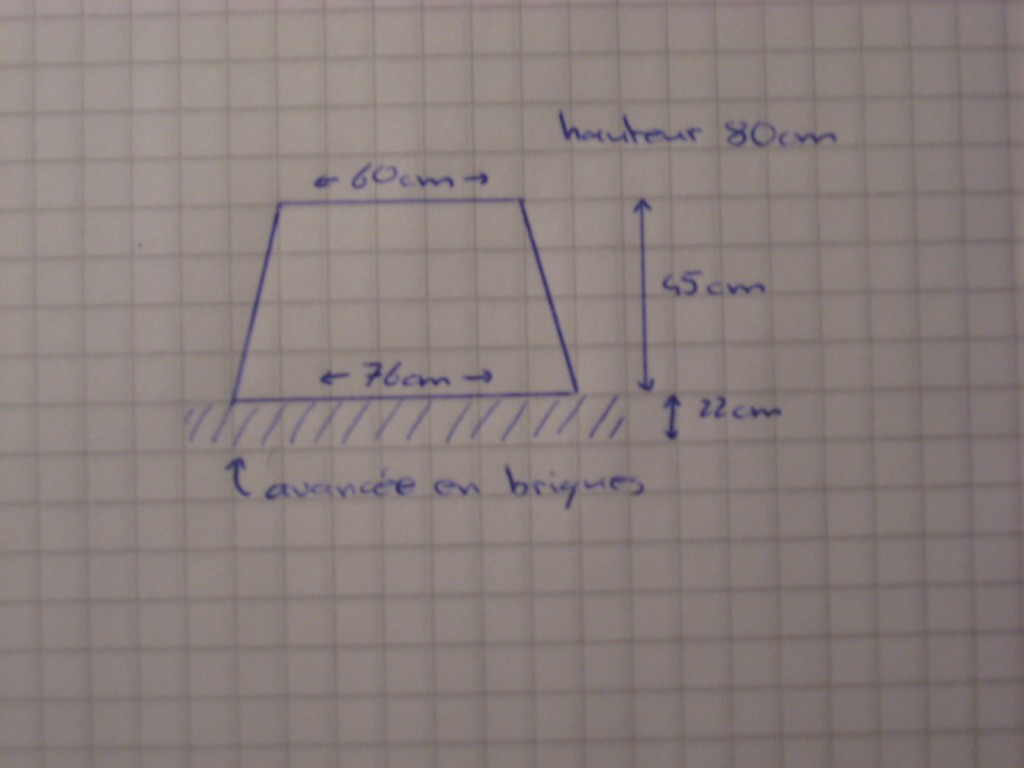 hauteur 80cm
← 60cm →
45cm
← 76cm →
22cm
avancée en briques